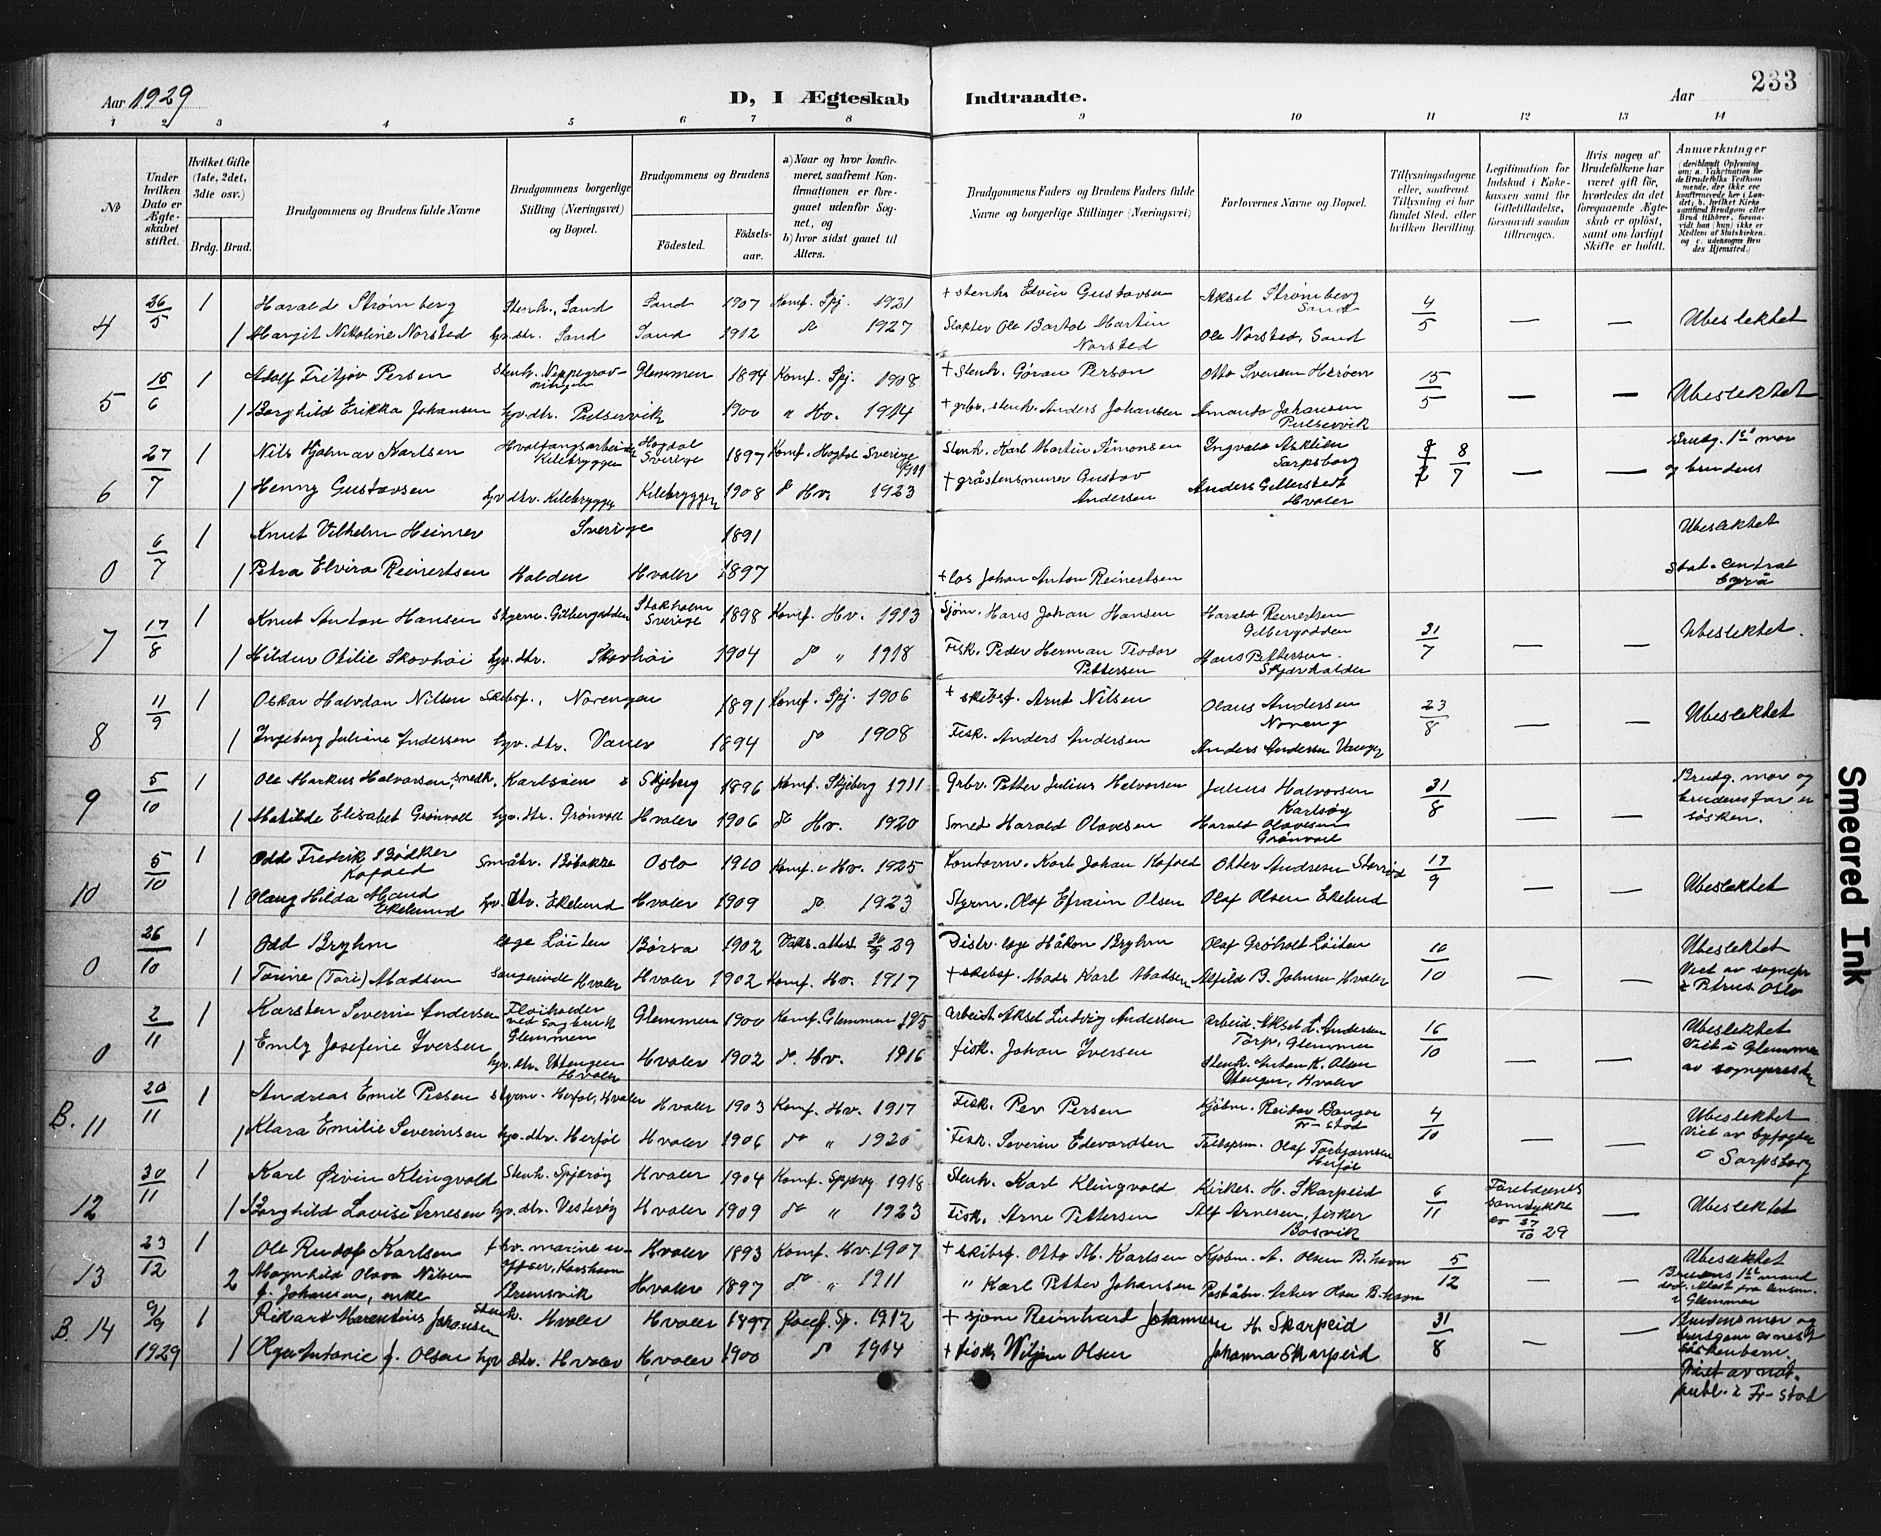 Aar 1929
D, I Ægteskab Indtraadte.
Aar
233
1 2 3 4 5 6 7 8 9 10 11 12 13 14
No
Under hvilken Dato er Ægteskabet stiftet.
Hvilket Gifte (1ste, 2det, 3die osv.)
Brdg. Brud.
Brudgommens og Brudens fulde Navne
Brudgommens borgerlige Stilling (Næringsvei) og Bopæl.
Brudgommens og Brudens
Fødested.
Fødselsaar.
a) Naar og hvor konfirmeret, saafremt Konfirmationen er foregaaet udenfor Sognet, og
b) hvor sidst gaaet til Alters.
Brudgommens Faders og Brudens Faders fulde Navne og borgerlige Stillinger (Næringsvei)
Forlovernes Navne og Bopæl.
Tillysningsdagene eller, saafremt Tillysning ei har fundet Sted, efter hvilken Bevilling.
Legitimation for Indskud i Enkekassen samt for Giftetilladelse, forsaavidt saadan tiltrænges.
Hvis nogen af Brudefolkene har været gift før, hvorledes da det foregaaende Ægteskab er opløst, samt om lovligt Skifte er holdt.
Anmærkninger
4 26/5 1 Harald Strømberg Stenh., Sand Sand 1907 Konf. Spj. 1921 + stenh. Edvin Gustavsen Aksel Strømberg Sand 4/5 — — Ubeslektet
1 Margit Nikoline Norsted hv. dtr. Sand Sand 1912 do 1927 Slakter Ole Bartol Martin Norsted Ole Norsted, Sand
5 15/6 1 Adolf Fritjov Persen Stenh. Glemmen 1894 Konf. Spj. 1908 + Stenh. Göran Person Otto Svensen Herøen 15/5 — — Ubeslektet
1 Borghild Erikka Johansen hv. dtr. Pulservik 1900 " Hv. 1914 + grbr., stenh. Anders Johansen Amanda Johansen Pulservik
6 27/7 1 Nils Hjalmar Karlsen Hvalfangsarbeider Kilebryggen Hogdal Sverige 1897 Konf. Hogdal Sverige 1911 Stenh. Karl Martin Simonsen Ingvald Asklien Sarpsborg 8/7 — — Brudg. 1ste mor og brudens
1 Henny Gustavsen hv. dtr. Kilebryggen Kilebryggen 1908 do Hv. 1923 + gråstensmurer Gustav Andersen Anders Gellerstedt Hvaler
0 6/7 1 Knut Vilhelm Heimer Sverige 1891 Ubeslektet
1 Petra Elvira Reinertsen Halden Hvaler 1897 + los Johan Anton Reinertsen Stat. Central byrå
7 17/8 1 Knut Anton Hansen Gilbergodden Stokholm Sverige 1898 Konf. Hv. 1913 Sjøm. Hans Johan Hansen Harald Reinertsen Gilbergodden 31/7 — — Ubeslektet.
1 Hildur Otilie Skovhøi hv. dtr. Skovhøi 1904 do " 1918 Fisk. Peder Herman Teodor Pettersen Hans Pettersen Skjærhalden
8 11/9 1 Oskar Halvdan Nilsen Skibsf., Norengen 1891 Konf. Spj. 1906 + skibsf. Arnt Nilsen Olaus Andersen Noreng 23/8 — — Ubeslektet
1 Ingeborg Juliane Andersen hv. dtr. Vauer 1894 do 1908 Fisk. Anders Andersen Anders Andersen Vauger
9 5/10 1 Ole Markus Halvorsen, smedh. Karlsøen Skjeberg 1896 Konf. Skjeberg 1911 Grbr. Petter Julius Halvorsen Julius Halvorsen Karlsøy 31/8 — — Brudg. mor og brudens far er søsken.
1 Matilde Elisabet Grønvoll hv. dtr. Grønvoll Hvaler 1906 do Hv. 1920 Smed Harald Olavesen Harald Olavesen Grønvoll
10 5/10 1 Odd Fredrik Bødker Kofoed Småbr. Bibakke Oslo 1910 Konf. i Hv. 1925 Kontorm. Karl Johan Kofoed Otter Andresen Storrød 17/9 — — Ubeslektet
1 Olaug Hilda Maud Ekelund hv. dtr. Ekelund Hvaler 1909 do 1923 Styrm. Olaf Efraim Olsen Olaf Olsen Ekelund
0 26/10 1 Odd Bryhm læge Løiten Børsa 1902 Vaks. attest 20/9 29 Distr. læge Håkon Bryhm Olaf Grøholt Løiten 10/10 — — Ubeslektet Viet av sognepr. i Petrus Oslo
1 Torine (Tore) Madsen Sangerinde Hvaler Hvaler 1902 Konf. Hv. 1917 + skibsf. Mads Karl Madsen Alfild B. Johnsen Hvaler
0 2/11 1 Karsten Severin Andersen ved sagbruk Glemmen Glemmen 1900 Konf. Glemmen Arbeid. Aksel Ludvig Andersen Arbeid. Aksel L. Andersen Torp, Glemmen 16/10 — — Ubeslektet Viet i Glemmen av sognepresten
1 Emly Josefine Iversen hv. dtr. Utengen Hvaler Hvaler 1902 do. Hv. 1916 fisk. Johan Iversen Stenh. Anton K. Olsen Utengen, Hvaler
B. 11 20/11 1 Andreas Emil Persen styrm. Herføl, Hvaler Hvaler 1903 Konf. Hv. 1917 Fisk. Per Persen Kjøbm. Reidar Bangor Fr-stad 4/10 — — Ubeslektet Viet av byfogden i Sarpsborg
1 Klara Emilie Severinsen hv. dtr. Herføl Hvaler 1906 do " 1920 Fisk. Severin Edvardsen Olaf Torbjørnsen Herføl
12 30/11 1 Karl Øivin Klingvold Stenh. Spjærøy Hvaler 1904 Konf. Spjærøy 1918 Stenh. Karl Klingvold Kirkes. H. Skarpeid 6/11 Forældrenes samtykke av 27/10 29 — Ubeslektet
1 Borghild Lovise Arnesen hv. dtr. Vesterøy Hvaler 1909 do " 1923 Fisk. Arne Pettersen Alf Arnesen, fisker Bøsvik
13 23/12 1 Ole Rudolf Karlsen Hvaler 1893 Konf. Hv. 1907 + skibsf. Otto M. Karlsen Kjøbm. A. Olsen B. havn 5/12 — — Ubeslektet Brudens 1ste mand
2 Magnhild Olava Nilsen f. Johansen, enke Brunsvik Hvaler 1897 do " 1911 " Karl Petter Johansen Poståbn. Olsen B. havn i Glemmen
B. 14 9/9 1929 1 Rikard Marentius Johansen Stenh. Hvaler Hvaler 1897 Konf. Sp. 1912 + sjøm Reinhard Johannesen H. Skarpeid 31/8 — — Brudens mor og brudgom er næst søskenbarn. Viet av not. publ. i Fr-stad
1 Olga Antonie f. Olsen hv. dtr. Hvaler Hvaler 1900 do 1914 + fisk. Wiljam Olsen Johanna Skarpeid
Smeared Ink